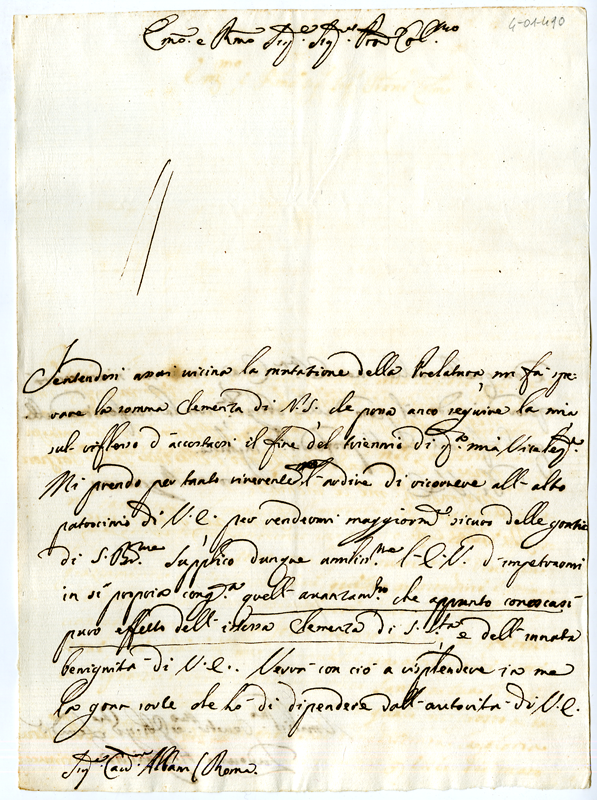 4-01-410
Em̃o. e Rm̃o Sig.e Sig.e Pron Col.mo
Sentendosi assai vicina la mutatione della Prelatura mi fà spe-
rare la somma Clemenza di N.S. che possa anco seguire la mia
sul riflesso d'accostarsi il fine del triennio di q.ta mia Viceleg.e
Mi prendo per tanto riverente l'ardire di ricorrere all'alto
patrocinio di V.E. per rendermi maggiorm.e sicuro delle gratie
di S. B.ne Supplico dunque umilis.me l'E.V. d'impetrarmi
in sì propria cong.a quell'avanzam.to che appunto conoscasi
puro effetto dell'istessa Clemenza di S. S.tà e dell'innata
benignità di V.E. Verrà con ciò a risplendere in me
la gran sorte che hò di dipendere dall'autorità di V.E.
Sig.e Card.e Albani (Roma.